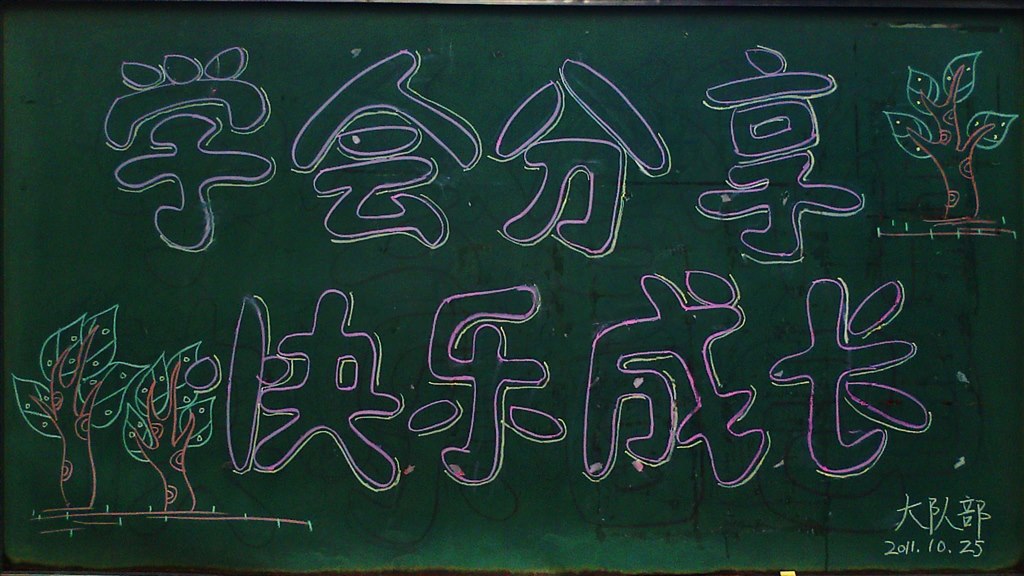 学会分享
快乐成长
大队部
2011.10.25